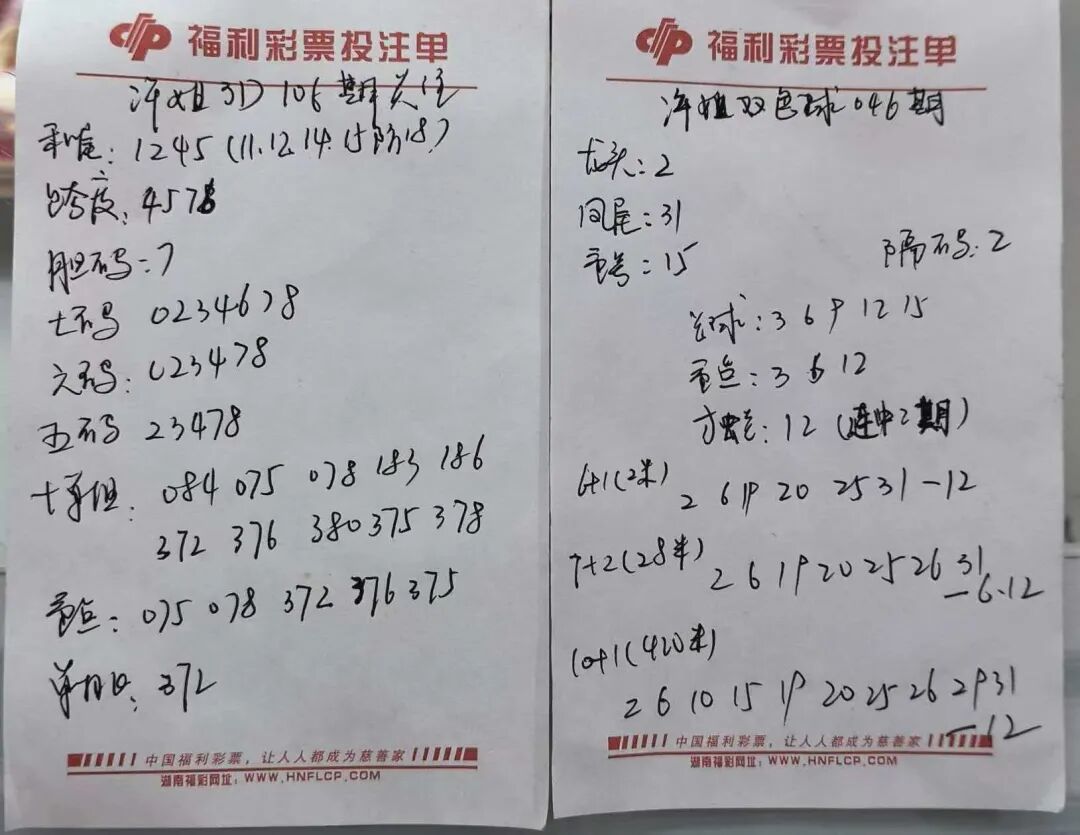 福利彩票投注单
萍姐3D 106期关注
和尾：1245（11.12.14.15防18）
跨度：4578
胆码：7
七码 0234678
六码：023478
五码 23478
十单组：084 075 078 183 186
372 376 380 375 378
重点：075 078 372 376 375
单挑：372
中国福利彩票，让人人都成为慈善家
湖南福彩网址：WWW.HNFLCP.COM
福利彩票投注单
萍姐双色球046期
龙头：2
凤尾：31
重号：15
隔码：2
兰球：3 6 9 12 15
重点：3 6 12
独兰：12（连中2期）
6+1（2米） 2 6 19 20 25 31-12
7+2（28米） 2 6 19 20 25 26 31
-6.12
10+1（420米）
2 6 10 15 19 20 25 26 29 31
-12
中国福利彩票，让人人都成为慈善家
湖南福彩网址：WWW.HNFLCP.COM